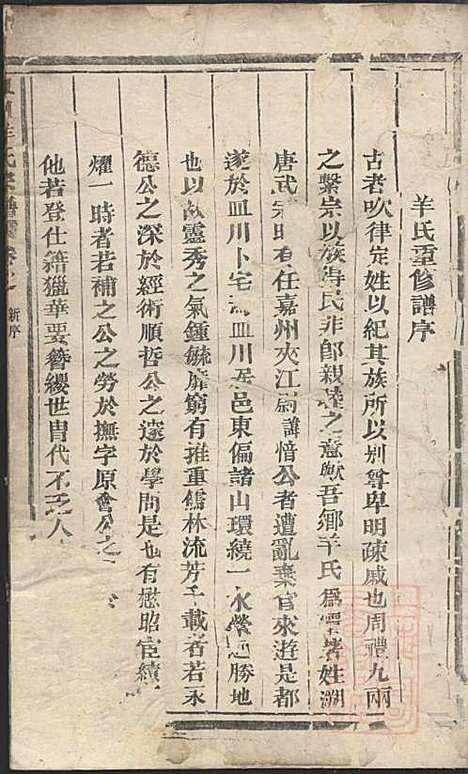 羊氏重修譜序
古者吹律定姓以紀其族所以別尊卑明疎戚也周禮九兩
之繫宗以族得民非卽親睦之意歟吾鄉羊氏爲雲著姓溯
唐武宗時有任嘉州夾江尉諱愔公者遭亂棄官來遊是都
遂於皿川卜宅焉皿川居邑東偏諸山環繞一水縈迴勝地
也以故靈秀之氣鍾毓靡窮有推重儒林流芳千載者若永
德公之深於經術順哲公之邃於學問是也有懋昭宦績
燿一時者若補之公之勞於撫字原會公之
他若登仕籍獵華要簪纓世冑代不乏人
羊氏宗譜
新序